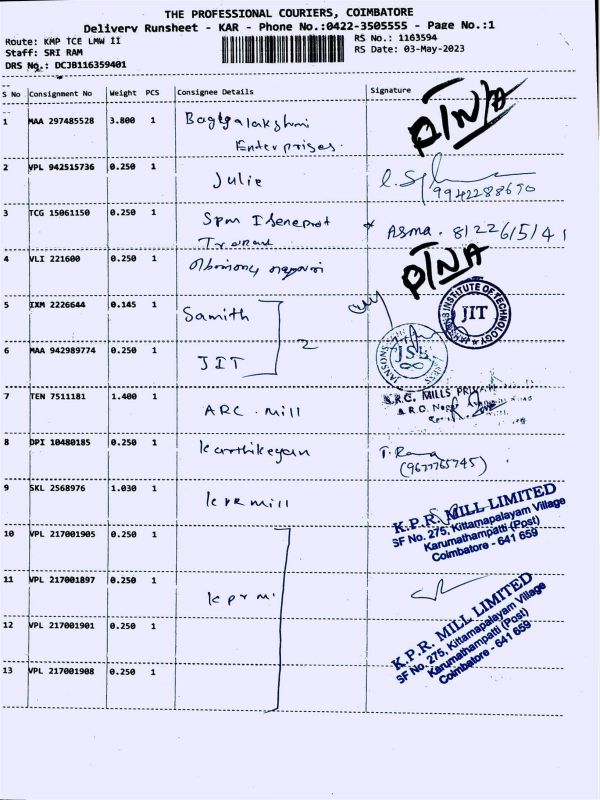 THE PROFESSIONAL COURIERS, COIMBATORE
Delivery Runsheet - KAR - Phone No.:0422-3505555 - Page No.:1
Route: KMP TCE LMW II
RS No.: 1163594
Staff: SRI RAM
RS Date: 03-May-2023
DRS No.: DCJB116359401
S No Consignment No Weight PCS Consignee Details Signature
1 MAA 297485528 3.800 1
Enterprises.
2 VPL 942515736 0.250 1 Julie
9942288690
3 TCG 15061150 0.250 1 Spm
Asma. 8122615141
4 VLI 221600 0.250 1
5 IXM 2226644 0.145 1 Samith
INSTITUTE OF TECHNOLOGY
JIT
6 MAA 942989774 0.250 1 JIT 2
JSB
7 TEN 7511181 1.400 1 ARC. Mill
A.R.C. MILLS
8 DPI 10480185 0.250 1 Karthikeyan
(9677765745)
9 SKL 2568976 1.030 1 kpr mill
K.P.R. MILL LIMITED
SF No. 275, Kittamapalayam Village
Karumathampatti (Post)
Coimbatore - 641 659
10 VPL 217001905 0.250 1
11 VPL 217001897 0.250 1 kpr m.
12 VPL 217001901 0.250 1
K.P.R. MILL LIMITED
SF No. 275, Kittamapalayam Village
Karumathampatti (Post)
Coimbatore - 641 659
13 VPL 217001908 0.250 1